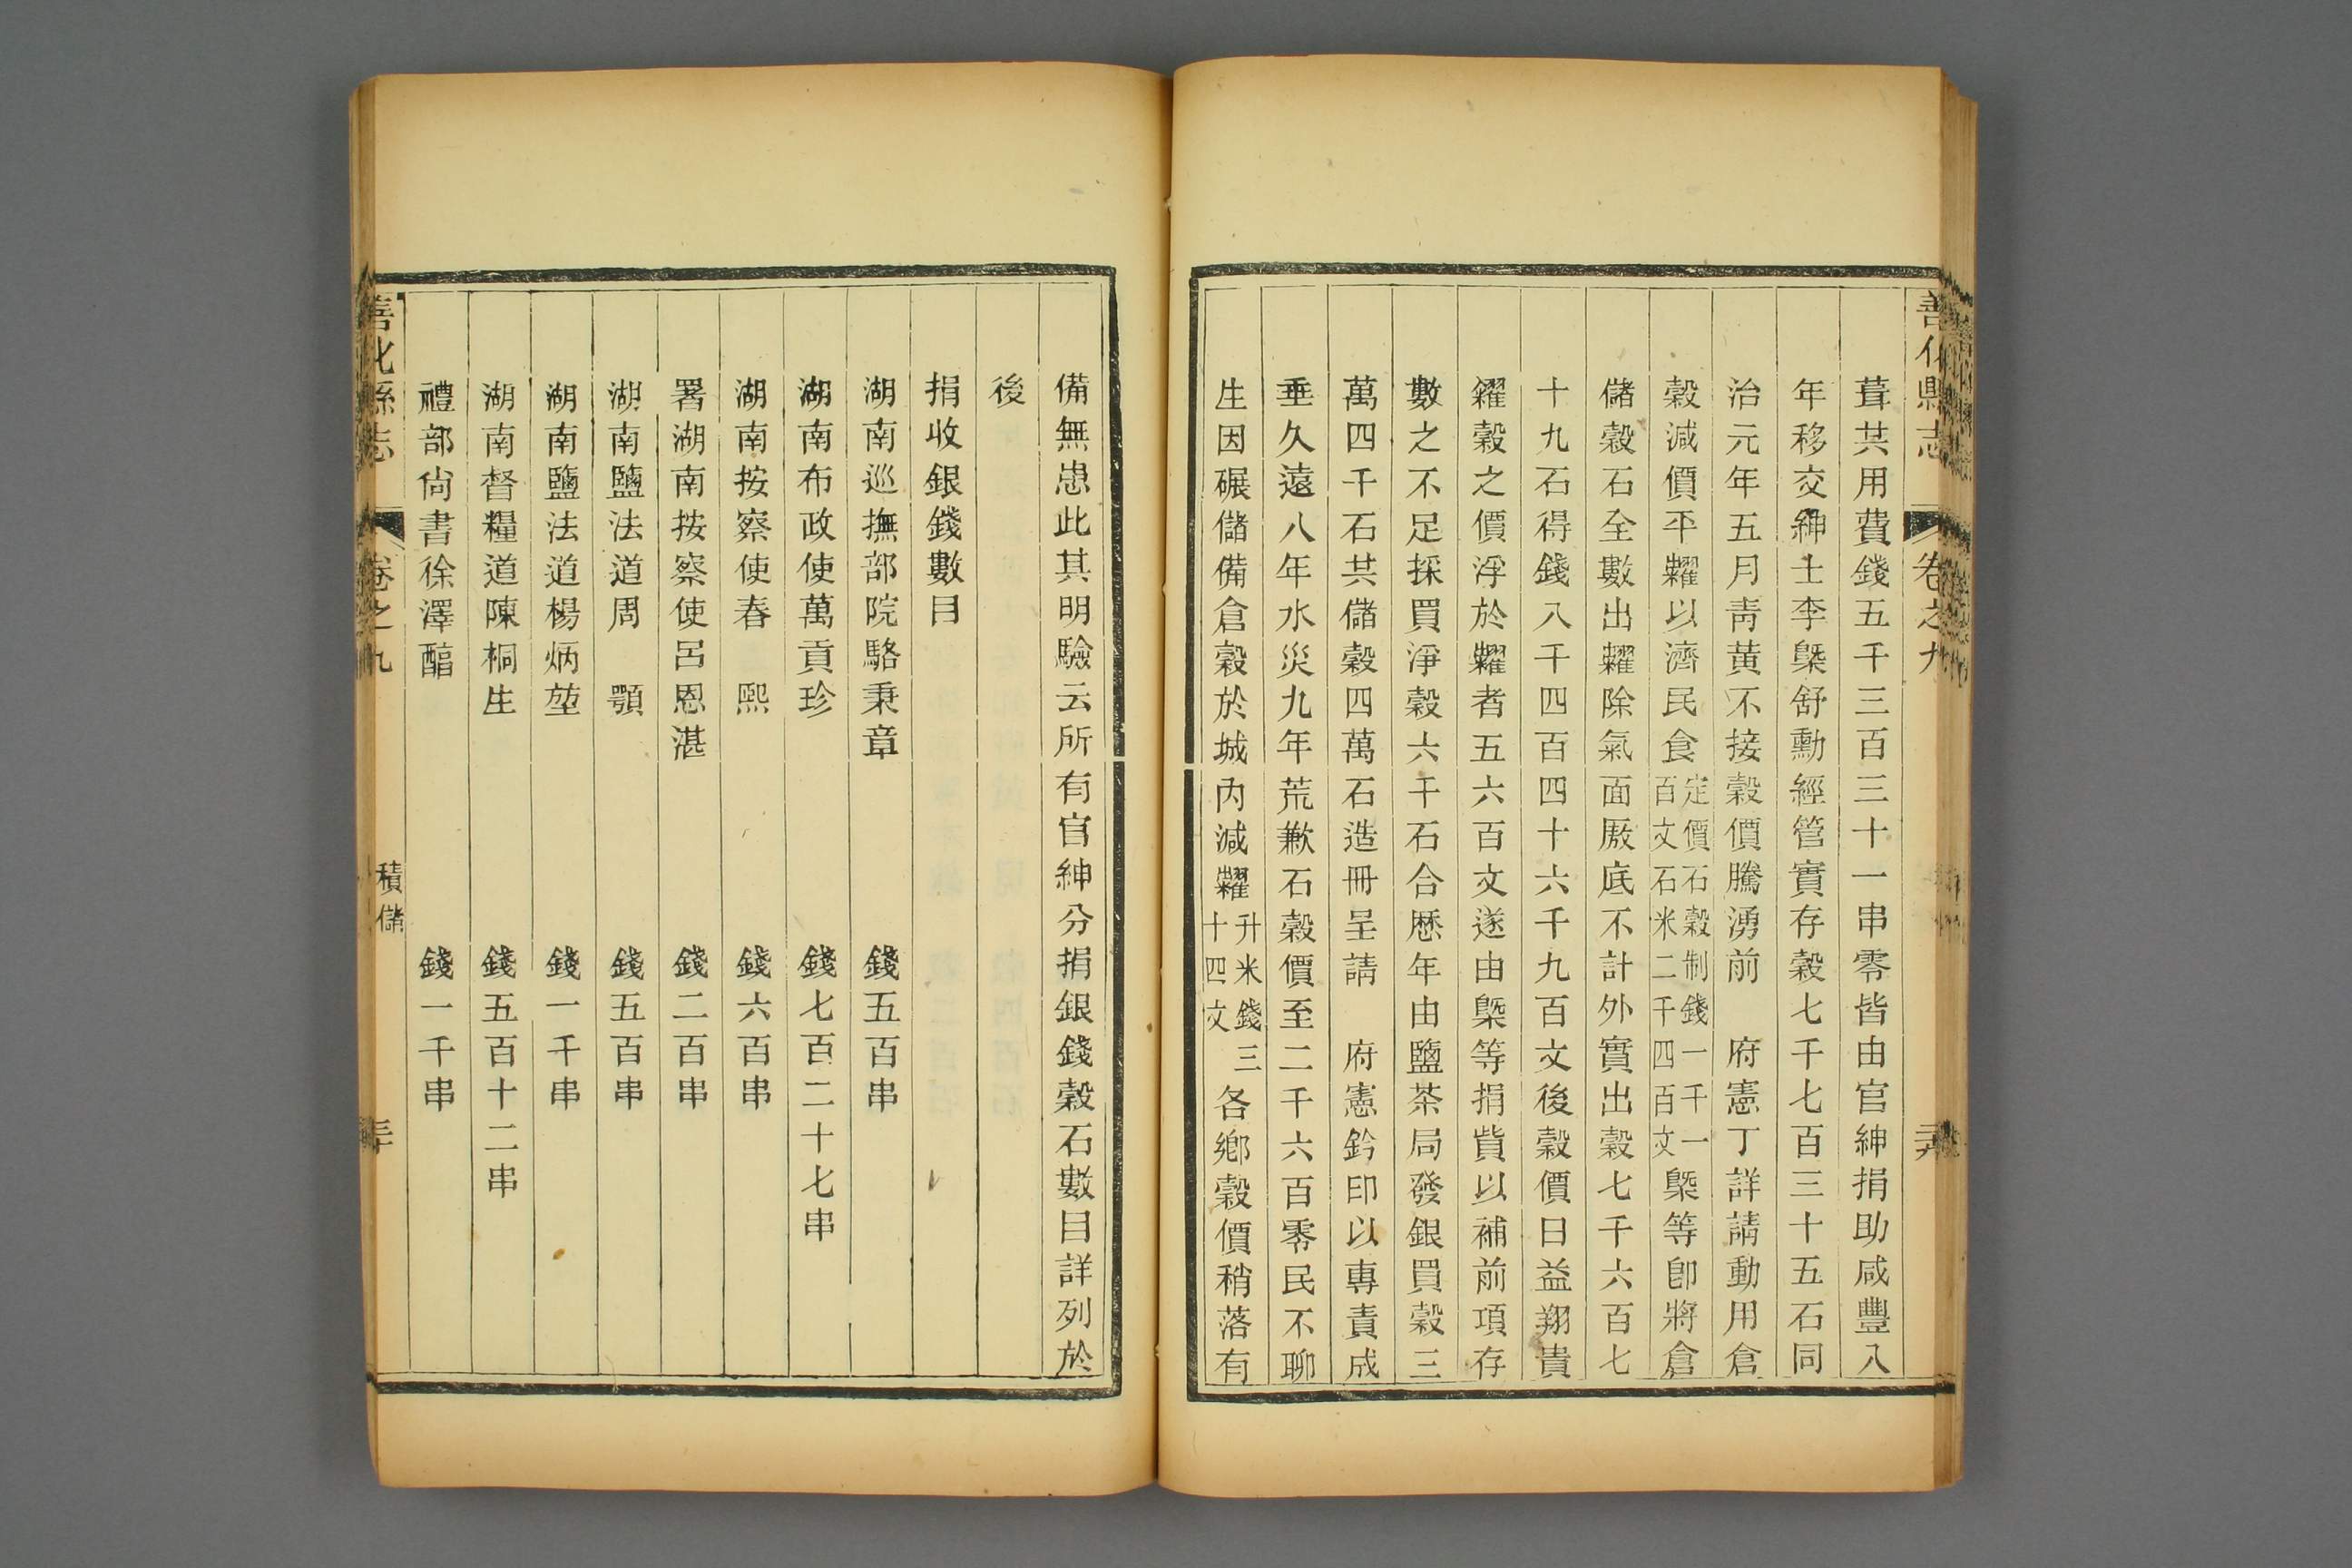 善化縣志 卷之九
葺共用費錢五千三百三十一串零皆由官紳捐助咸豐八
年移交紳士李槩舒勳經管實存穀七千七百三十五石同
治元年五月靑黃不接穀價騰湧前 府憲丁詳請動用倉
穀減價平糶以濟民食定價石穀制錢一千一百文石米二千四百文槩等卽將倉
儲穀石全數出糶除氣面厫底不計外實出穀七千六百七
十九石得錢八千四百四十六千九百文後穀價日益翔貴
糴穀之價浮於糶者五六百文遂由槩等捐貲以補前項存
數之不足採買淨穀六千石合歷年由鹽茶局發銀買穀三
萬四千石共儲穀四萬石造冊呈請 府憲鈐印以專責成
垂久遠八年水災九年荒歉石穀價至二千六百零民不聊
生因碾儲備倉穀於城內減糶升米錢三十四文各鄉穀價稍落有
備無患此其明驗云所有官紳分捐銀錢穀石數目詳列於
後
捐收銀錢數目
湖南巡撫部院駱秉章 錢五百串
湖南布政使萬貢珍 錢七百二十七串
湖南按察使春 熙 錢六百串
署湖南按察使呂恩湛 錢二百串
湖南鹽法道周 顎 錢五百串
湖南鹽法道楊炳堃 錢一千串
湖南督糧道陳桐生 錢五百十二串
禮部尙書徐澤醕 錢一千串
善化縣志 卷之九 積儲 三十